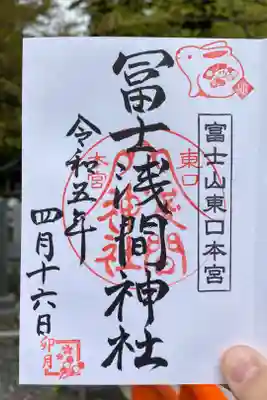 富士山東口本宮
冨士浅間神社
東口
本宮
浅間
神社
令和五年
四月十六日
卯月